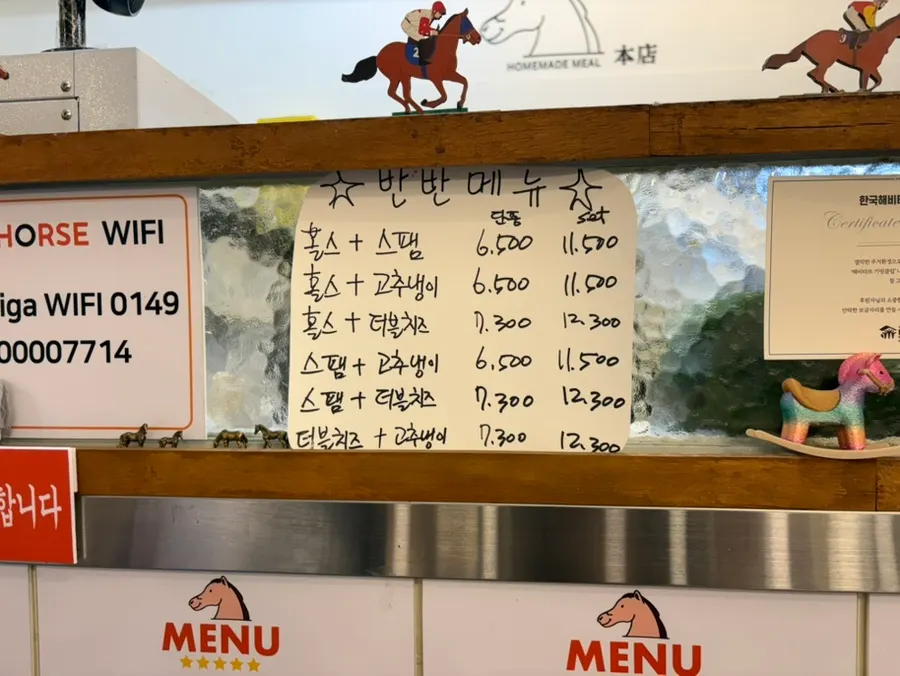 HOMEMADE MEAL 本店
2
HORSE WIFI
iga WIFI 0149
00007714
☆ 반반 메뉴 ☆
단품 set
홀스 + 스팸 6,500 11,500
홀스 + 고추냉이 6,500 11,500
홀스 + 더블치즈 7.300 12.300
스팸 + 고추냉이 6,500 11,500
스팸 + 더블치즈 7.300 12.300
더블치즈 + 고추냉이 7.300 12.300
한국해비타
Certificate
합니다
MENU
MENU